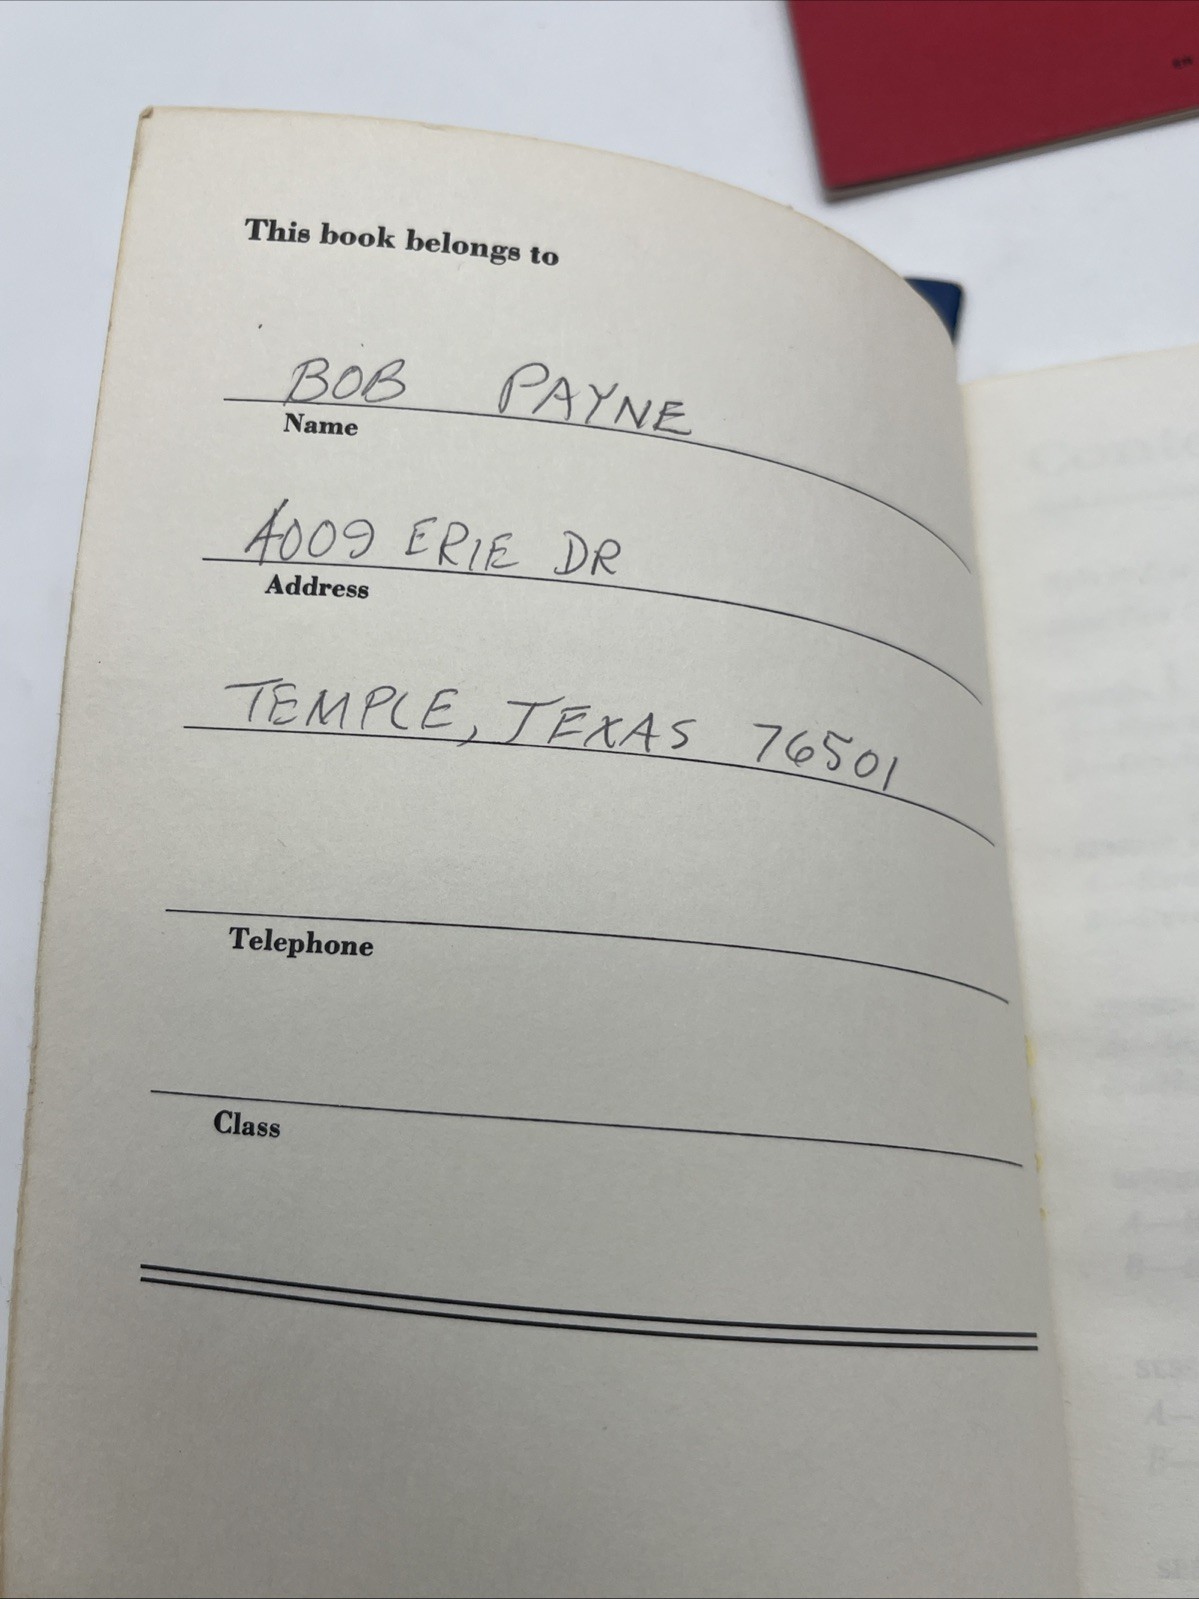 This book belongs to
BOB PAYNE
Name
4009 ERIE DR
Address
TEMPLE, TEXAS 76501
Telephone
Class